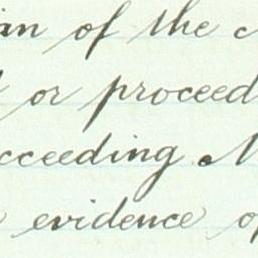 an of the
or proceed
cceeding
evidence o